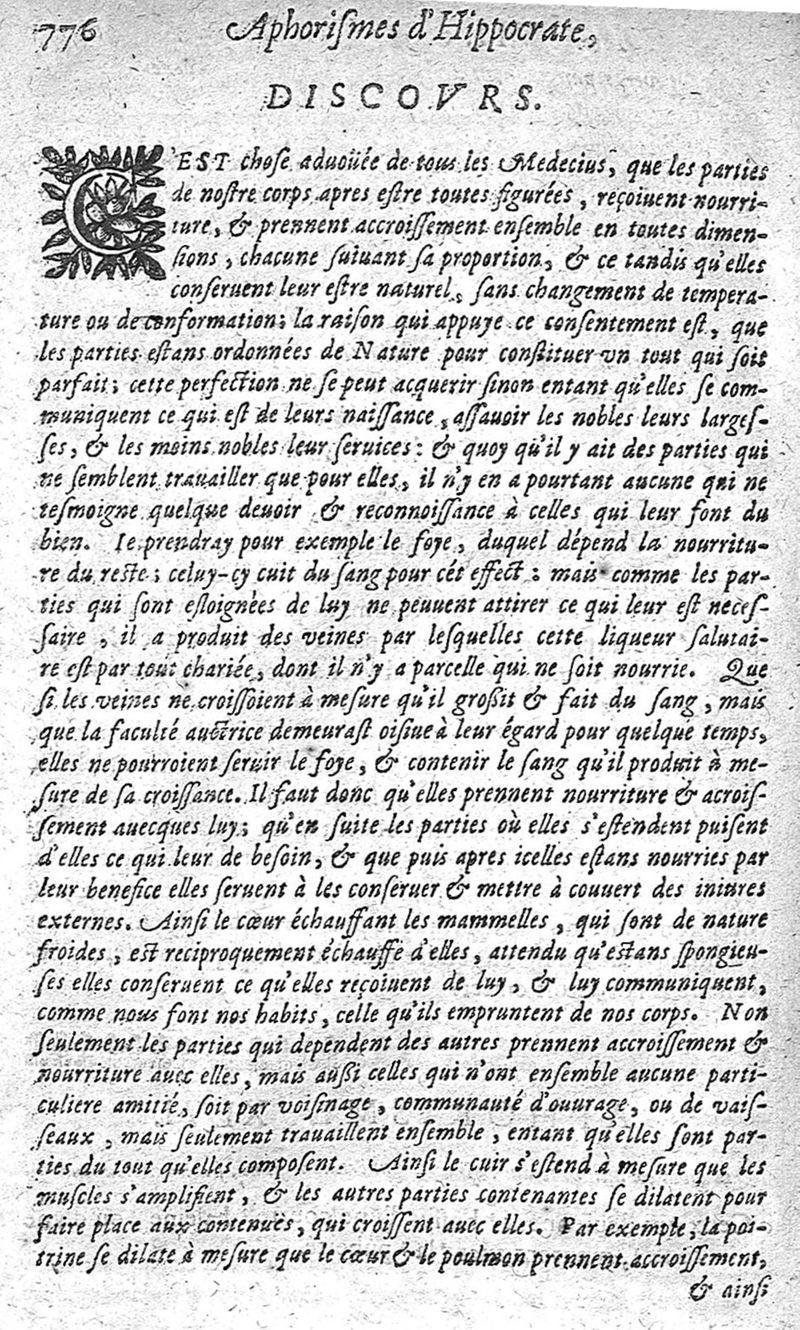 776 Aphoriſmes d'Hippocrate,
DISCOVRS.
C'EST choſe aduoüée de tous les Medecius, que les parties
de noſtre corps apres eſtre toutes figurées, reçoiuent nourri-
ture, & prennent accroiſſement enſemble en toutes dimen-
ſions, chacune ſuiuant ſa proportion, & ce tandis qu'elles
conſeruent leur eſtre naturel, ſans changement de tempera-
ture ou de conformation; la raison qui appuye ce conſentement eſt, que
les parties eſtans ordonnées de Nature pour conſtituer vn tout qui ſoit
parfait; cette perfection ne ſe peut acquerir ſinon entant qu'elles ſe com-
muniquent ce qui eſt de leurs naiſſance, aſſauoir les nobles leurs largeſ-
ſes, & les moins nobles leur ſeruices: & quoy qu'il y ait des parties qui
ne ſemblent trauailler que pour elles, il n'y en a pourtant aucune qui ne
teſmoigne quelque deuoir & reconnoiſſance à celles qui leur font du
bien. Ie prendray pour exemple le foye, duquel dépend la nourritu-
re du reſte; celuy-cy cuit du ſang pour cét effect: mais comme les par-
ties qui ſont eſloignées de luy ne peuuent attirer ce qui leur eſt neceſ-
ſaire, il a produit des veines par leſquelles cette liqueur ſalutai-
re eſt par tout chariée, dont il n'y a parcelle qui ne ſoit nourrie. Que
ſi les veines ne croiſſoient à meſure qu'il großit & fait du ſang, mais
que la faculté auctrice demeuraſt oiſiue à leur égard pour quelque temps,
elles ne pourroient ſeruir le foye, & contenir le ſang qu'il produit à me-
ſure de ſa croiſſance. Il faut donc qu'elles prennent nourriture & acroiſ-
ſement auecques luy; qu'en ſuite les parties où elles s'eſtendent puiſent
d'elles ce qui leur de beſoin, & que puis apres icelles eſtans nourries par
leur benefice elles ſeruent à les conſeruer & mettre à couuert des iniures
externes. Ainſi le cœur échauffant les mammelles, qui ſont de nature
froides, eſt reciproquement échauffé d'elles, attendu qu'eſtans ſpongieu-
ſes elles conſeruent ce qu'elles reçoiuent de luy, & luy communiquent,
comme nous font nos habits, celle qu'ils empruntent de nos corps. Non
ſeulement les parties qui dependent des autres prennent accroiſſement &
nourriture auec elles, mais außi celles qui n'ont enſemble aucune parti-
culiere amitié, ſoit par voiſinage, communauté d'ouurage, ou de vaiſ-
ſeaux, mais ſeulement trauaillent enſemble, entant qu'elles ſont par-
ties du tout qu'elles compoſent. Ainſi le cuir s'eſtend à meſure que les
muſcles s'amplifient, & les autres parties contenantes ſe dilatent pour
faire place aux contenuës, qui croiſſent auec elles. Par exemple, la poi-
trine ſe dilate à meſure que le cœur & le poulmon prennent accroiſſement,
& ainſi